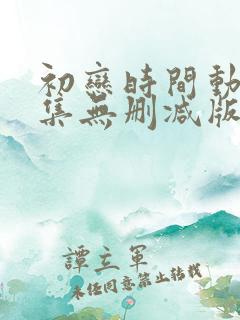 初戀時間動
集無刪減版
譚立軍
未任同意禁止轉載